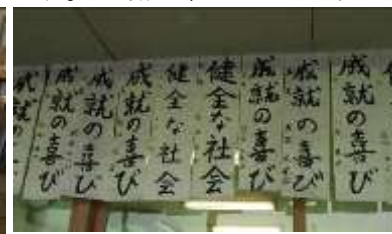 成就の喜び
成就の喜び
成就の喜び
健全な社会
健全な社会
成就の喜び
成就の喜び
成就の喜び
成就の